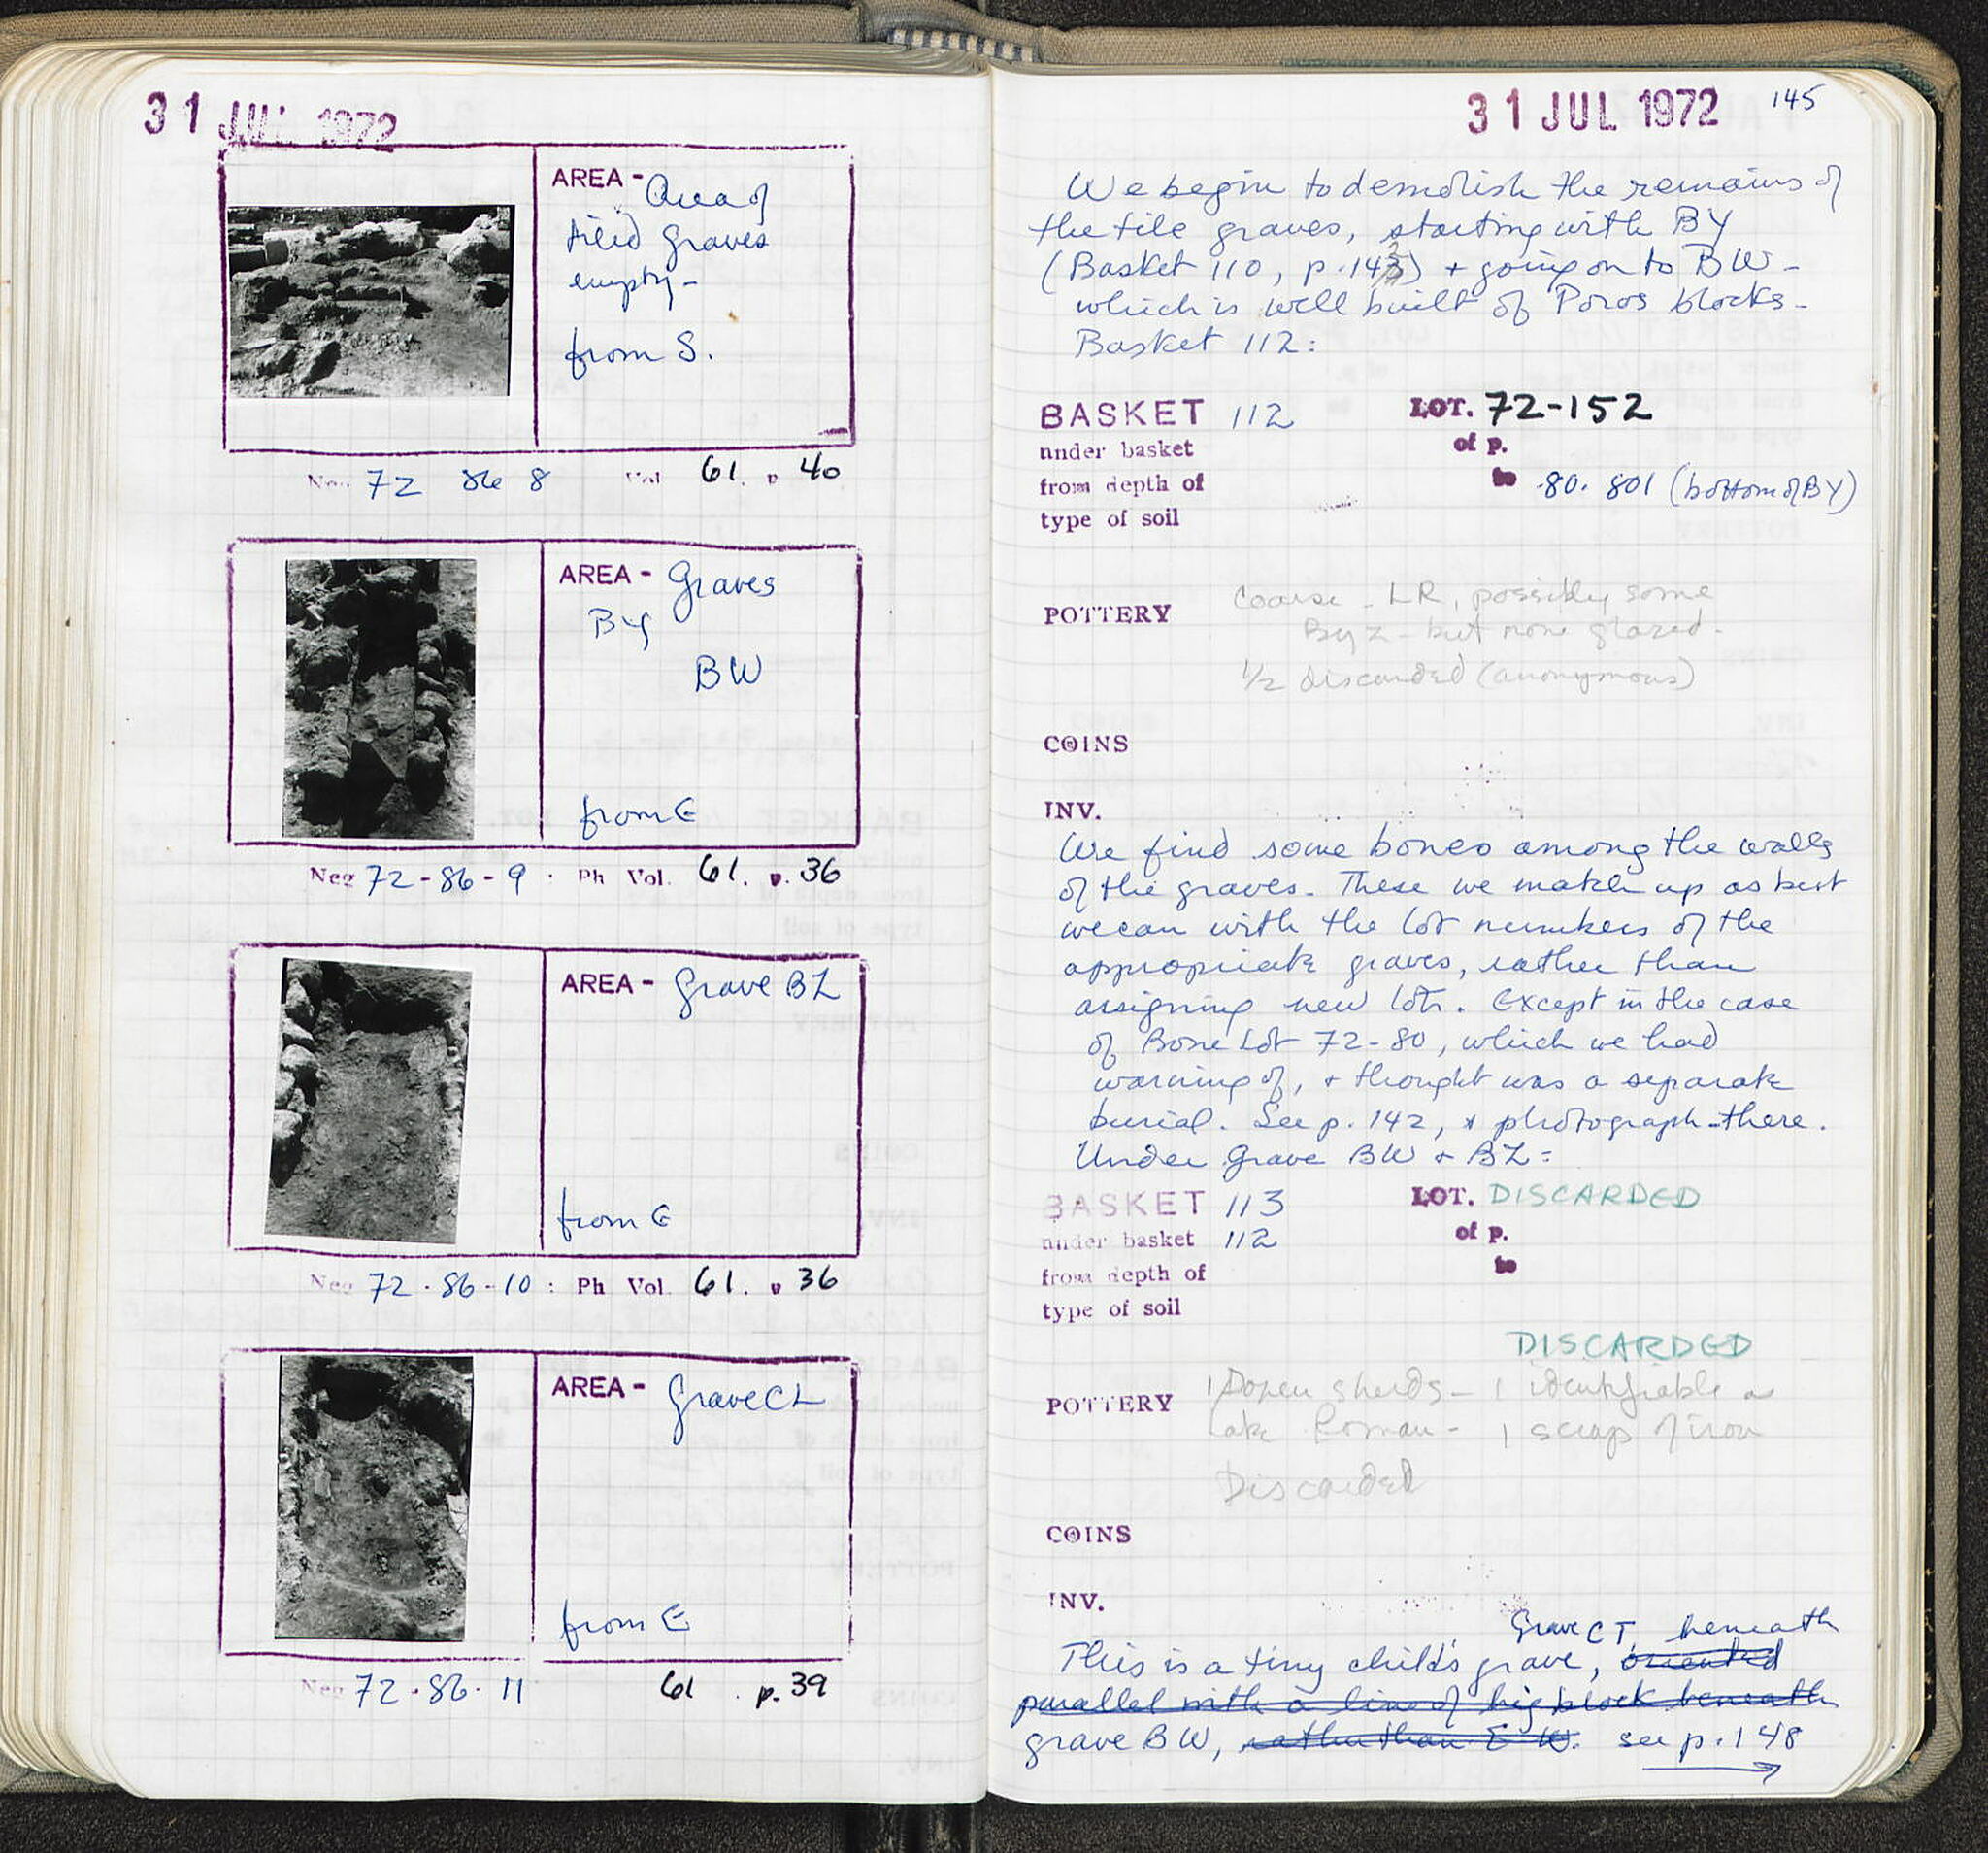 31 JUL 1972
AREA - Area of
tiled graves
empty -
from S.
Neg 72 86 8 Vol 61. p 40
AREA - Graves
BY
BW
from E
Neg 72-86-9 : Ph Vol. 61. p. 36
AREA - Grave BZ
from E
Neg 72-86-10 : Ph Vol. 61. p 36
AREA - Grave CL
from E
Neg 72-86-11 61 . p. 39
31 JUL 1972 145
We begin to demolish the remains of
the tile graves, starting with BY
(Basket 110, p. 143) + going on to BW -
which is well built of Poros blocks -
Basket 112:
BASKET 112 LOT. 72-152
under basket of p.
from depth of to -80.801 (bottom of BY)
type of soil
POTTERY Coarse - LR, possibly some
Byz - but none glazed.
1/2 discarded (anonymous)
COINS
INV.
We find some bones among the walls
of the graves. These we match up as best
we can with the lot numbers of the
appropriate graves, rather than
assigning new lots. Except in the case
of Bone Lot 72-80, which we had
warning of, + thought was a separate
burial. See p. 142, + photograph there.
Under Grave BW + BZ =
BASKET 113 LOT. DISCARDED
under basket 112 of p.
from depth of to
type of soil
DISCARDED
POTTERY 1 Dozen sherds - 1 identifiable as
Late Roman - 1 scrap of iron
Discarded
COINS
INV.
Grave CT, beneath
This is a tiny child's grave, oriented
parallel with a line of big block beneath
grave BW, rather than E-W. see p. 148